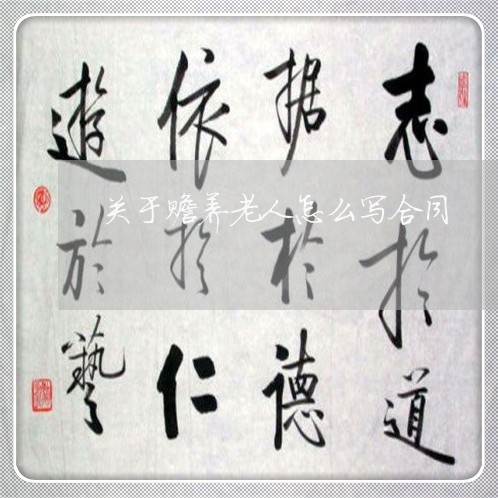 志於道
据於德
依於仁
遊於藝
关于赡养老人怎么写合同